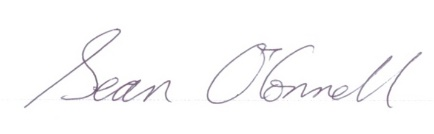 Sean O'Connell